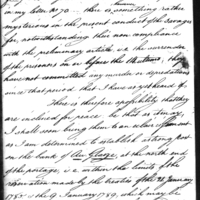 in my letter No 70 — there is something rather
mysterious in the present conduct of the Savages
for, notwithstanding their non compliance
with the preliminary article, viz the surrender
of the prisoners on or before the 14th June, they
have not committed any murder or depredations
since that period, that I have as yet heard of.
There is therefore a possibility that they
are inclined for peace be that as it may
I shall soon bring them to an
as I am determined to establish a strong post
on the bank of Au Glaize, at the north end
of the portage, i.e. within the limits of the
reservation made by the treaties of the 21 January
1785 & the 9 January 1789, which may be